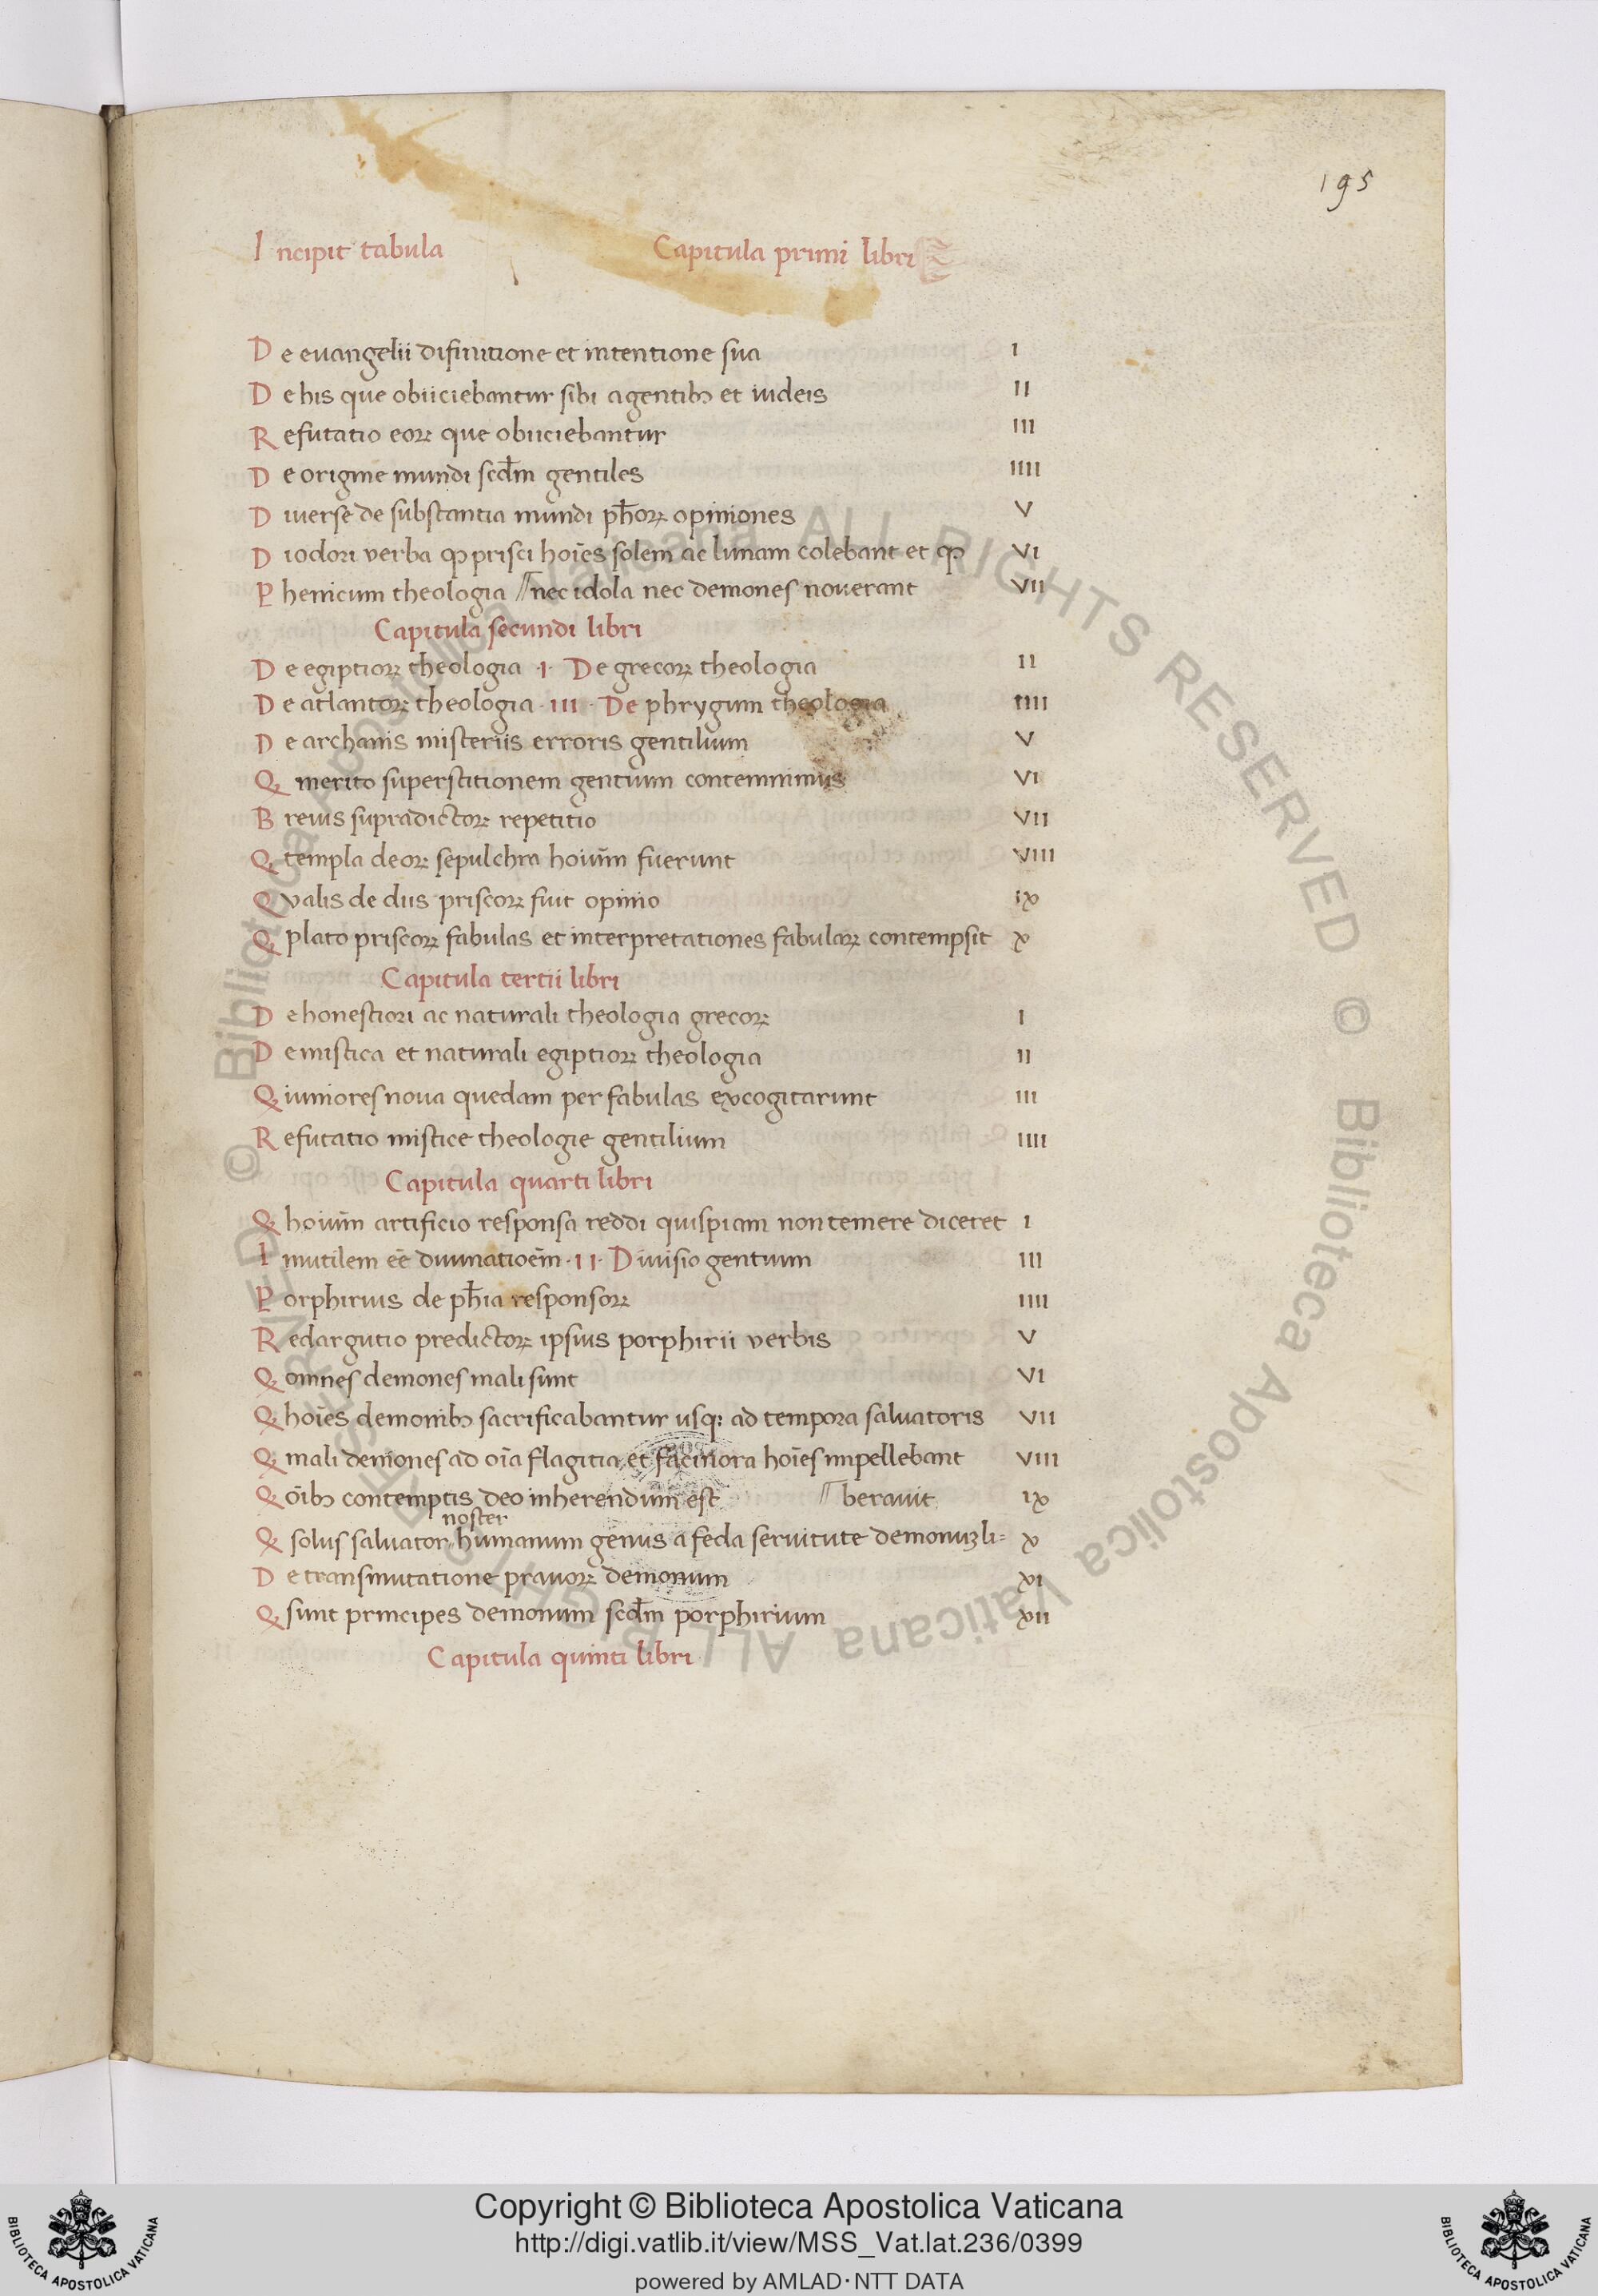 195
Incipit tabula Capitula primi libri
De euangelii difinitione et intentione sua I
De his que obiiciebantur sibi a gentibꝫ et iudeis II
Refutatio eoꝝ que obiiciebantur III
De origine mundi scd̄m gentiles IIII
Diuerse de substantia mundi ph̄oꝝ opiniones V
Diodori verba ꝙ prisci hoīes solem ac lunam colebant et ꝙ VI
Phenicum theologia //nec idola nec demones nouerant VII
Capitula secundi libri
De egiptioꝝ theologia ·I· De grecoꝝ theologia II
De atlantoꝝ theologia ·III· De phrygum theologia IIII
De archanis misteriis erroris gentilium V
Q merito superstitionem gentium contemnimus VI
Breuis supradictoꝝ repetitio VII
Q templa deoꝝ sepulchra hoium̄ fuerunt VIII
Qualis de diis priscoꝝ fuit opinio IX
Q plato priscoꝝ fabulas et interpretationes fabulaꝝ contempsit X
Capitula tertii libri
De honestiori ac naturali theologia grecoꝝ I
De mistica et naturali egiptioꝝ theologia II
Q iuniores noua quedam per fabulas excogitarunt III
Refutatio mistice theologie gentilium IIII
Capitula quarti libri
Q hoium̄ artificio responsa reddi quispiam non temere diceret I
Inutilem eē diuinatioem̄ ·II· Diuisio gentium III
Porphirius de ph̄ia responsoꝝ IIII
Redargutio predictoꝝ ipsius porphirii verbis V
Q omnes demones mali sunt VI
Q hoīes demonibꝫ sacrificabantur usqꝫ ad tempora saluatoris VII
Q mali demones ad oīa flagitia et facinora hoīes impellebant VIII
Q oībꝫ contemptis deo inherendum est //berauit IX
noster
Q solus saluator humanum genus a feda seruitute demonuꝫ li= X
De transmutatione prauoꝝ demonum XI
Q sunt principes demonum scd̄m porphirium XII
Capitula quinti libri
© Biblioteca Apostolica Vaticana ALL RIGHTS RESERVED © Biblioteca Apostolica Vaticana ALL RIGHTS RESERVED
Copyright © Biblioteca Apostolica Vaticana
http://digi.vatlib.it/view/MSS_Vat.lat.236/0399
powered by AMLAD·NTT DATA
BIBLIOTECA APOSTOLICA VATICANA
BIBLIOTECA APOSTOLICA VATICANA